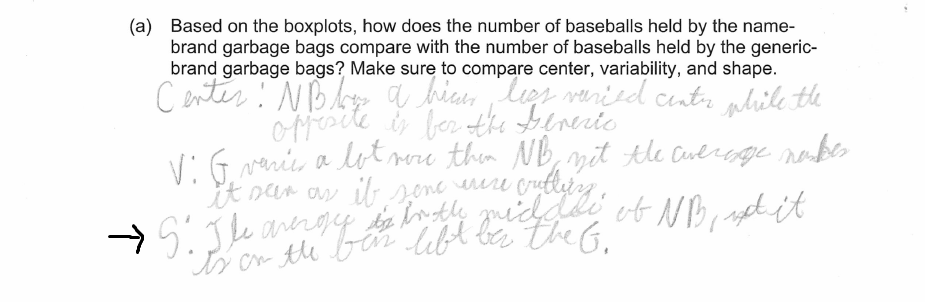 (a) Based on the boxplots, how does the number of baseballs held by the name-
brand garbage bags compare with the number of baseballs held by the generic-
brand garbage bags? Make sure to compare center, variability, and shape.
Center: NB has a less varied center while the
opposite is for the Generic
V: G varies a lot more than NB, yet the average number
it seen as if some were outliers.
→ S: The average is in the middle of NB, yet it
is on the far left for the G.